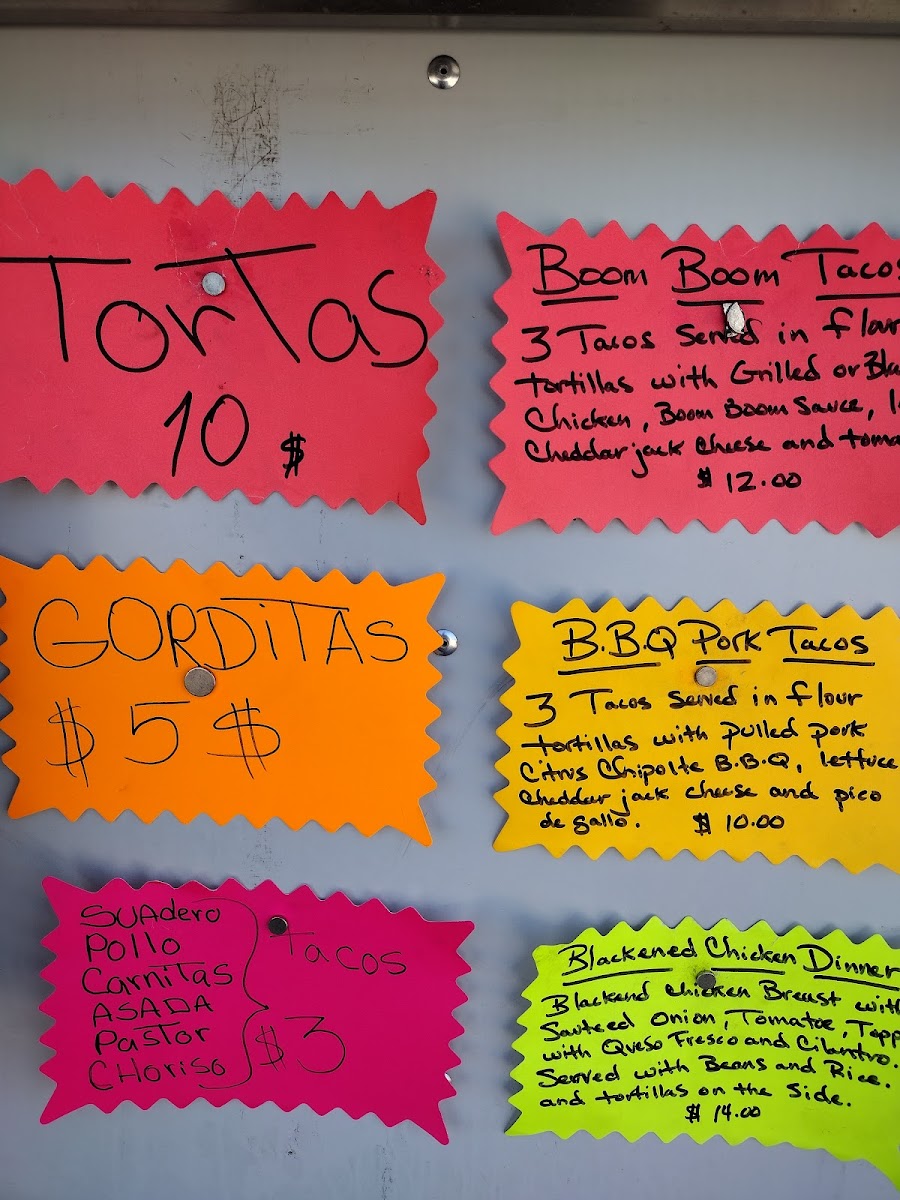 TorTas
10 $
Boom Boom Tacos
3 Tacos Served in flour
tortillas with Grilled or
Chicken, Boom Boom Sauce,
Cheddar jack cheese and
$ 12.00
GORDiTAS
$ 5 $
B.B.Q Pork Tacos
3 Tacos Served in flour
tortillas with pulled pork
Citrus Chipolte B.B.Q, lettuce
cheddar jack cheese and pico
de gallo. $ 10.00
SUAdero
Pollo
CarniTas
ASADA
PasTor
CHoriso
Tacos
$3
Blackened Chicken Dinner
Blackend chicken Breast with
Sauteed Onion, Tomatoe,
with Queso Fresco and Cilantro.
Served with Beans and Rice.
and tortillas on the Side.
$ 14.00